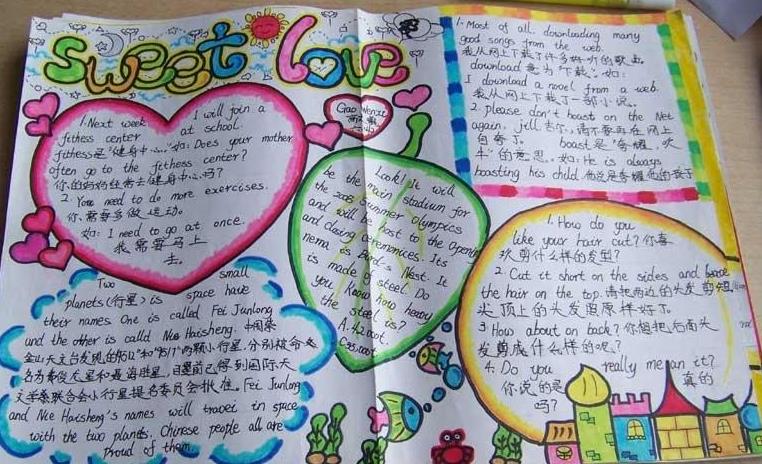 sweet love
1. Next week I will join a
fitness center at school.
fitness是"健身中心", 如: Does your mother
often go to the fitness center?
你的妈妈经常去健身中心吗?
2. You need to do more exercises.
你需要多做运动。
如: I need to go at once.
我需要马上
去。
Gao Wenxi
Look! It will
be the main stadium for
the 2008 Summer Olympics
and will be host to the Opening
and closing ceremonies. Its
nema is Bird's Nest. It
is made of steel. Do
you know how heavy
the steel is?
A. 42,000t.
C35,000t
1. Most of all. downloading many
good songs from the web.
我从网上下载了许多好听的歌曲
download 意为"下载". 如:
I download a novel from a web.
我从网上下载了一部小说。
2. please don't boast on the Net
again, jell 吉尔, 请不要再在网上
自夸了. boast是"夸耀, 吹
牛"的意思. 如: He is always
boasting his child. 他总是夸耀他的孩子
1. How do you
like your hair cut? 你喜
欢剪什么样的发型?
2. Cut it short on the sides and
the hair on the top. 请把两边的头发剪短,
头顶上的头发照原样好了.
3 How about on back? 你想把后面头
发剪成什么样的呢?
4. Do you really mean it?
你说的是真的
吗?
Two small
planets (行星) is space have
their names. One is called Fei Junlong
and the other is calld Nie Haisheng. 中国紫
金山天文台发现的 和 两颗小行星, 分别被命
名为费俊龙星和聂海胜星, 目前已得到国际天
文学联合会小行星提名委员会批准. Fei Junlong
and Nie Haisheng's names will travel in space
with the two planets. Chinese people all are
proud of them.